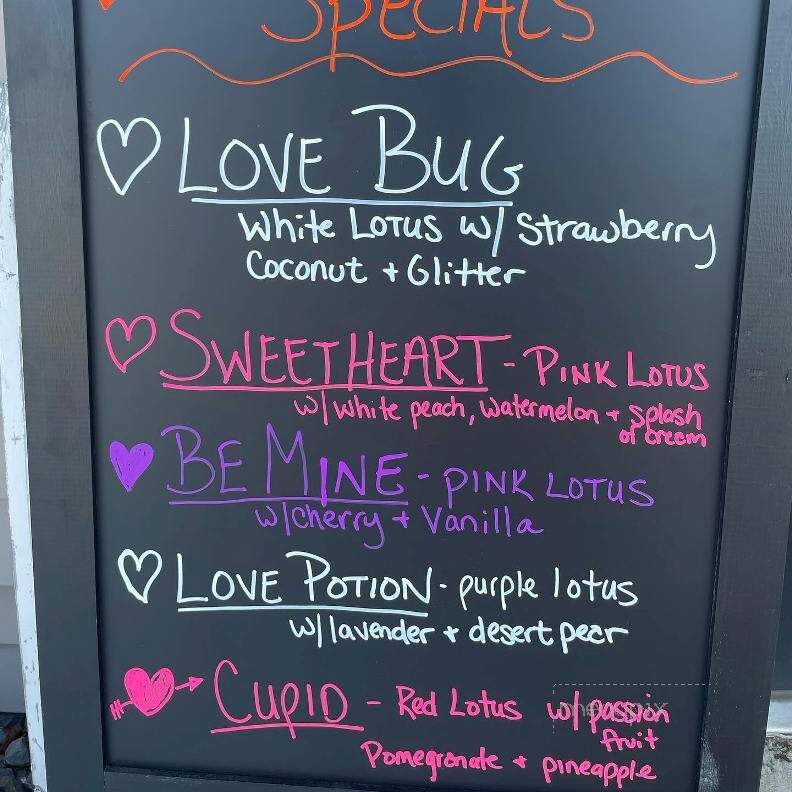 SPECIALS
LOVE BUG
White LOTUS w/ Strawberry
Coconut + Glitter
SWEETHEART - PINK LOTUS
w/ white peach, watermelon + splash
of creem
BE MINE - PINK LOTUS
w/cherry + Vanilla
LOVE POTION - purple lotus
w/ lavender + desert pear
CUPID - Red Lotus w/ passion
fruit
Pomegronate + pineapple